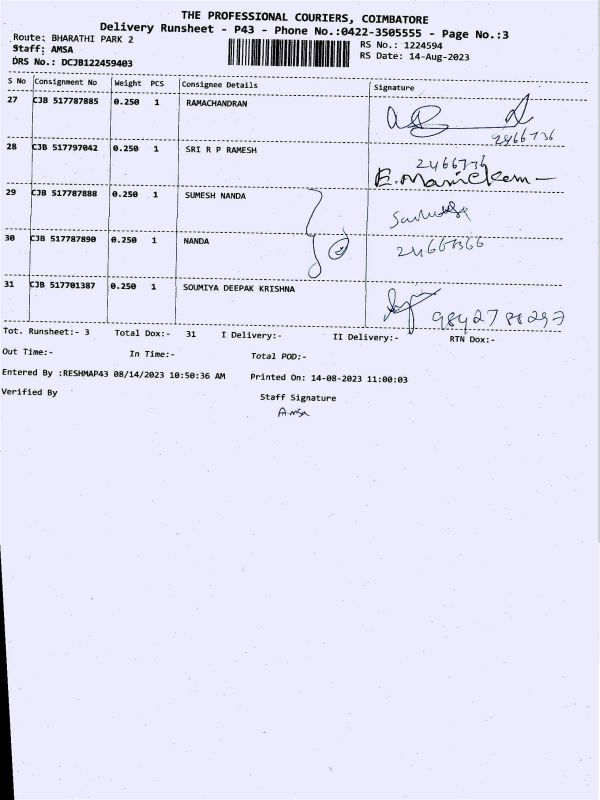 THE PROFESSIONAL COURIERS, COIMBATORE
Delivery Runsheet - P43 - Phone No.:0422-3505555 - Page No.:3
Route: BHARATHI PARK 2
RS No.: 1224594
Staff: AMSA
RS Date: 14-Aug-2023
DRS No.: DCJB122459403
S No Consignment No Weight PCS Consignee Details Signature
27 CJB 517787885 0.250 1 RAMACHANDRAN
2466736
28 CJB 517797042 0.250 1 SRI R P RAMESH
2466736
E. Manickam
29 CJB 517787888 0.250 1 SUMESH NANDA
30 CJB 517787890 0.250 1 NANDA
2
31 CJB 517701387 0.250 1 SOUMIYA DEEPAK KRISHNA
Tot. Runsheet:- 3 Total Dox:- 31 I Delivery:- II Delivery:- RTN Dox:-
Out Time:- In Time:- Total POD:-
Entered By :RESHMAP43 08/14/2023 10:50:36 AM Printed On: 14-08-2023 11:00:03
Verified By Staff Signature
Amsa